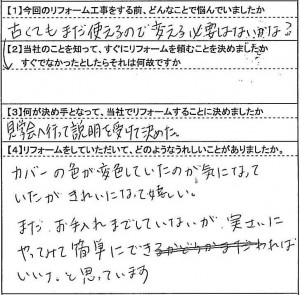 【1】今回のリフォーム工事をする前、どんなことで悩んでいましたか
古くてもまだ使えるので変える必要はないかな?
【2】当社のことを知って、すぐにリフォームを頼むことを決めましたか
すぐでなかったとしたらそれは何故ですか
【3】何が決め手となって、当社でリフォームすることに決めましたか
見学会へ行って説明を受けて決めた。
【4】リフォームをしていただいて、どのようなうれしいことがありましたか。
カバーの色が変色していたのが気になって
いたがきれいになって嬉しい。
まだ、お手入れまでしていないが、実さいに
やってみて簡単にできるかどうかまだわれば
いいな。と思っています